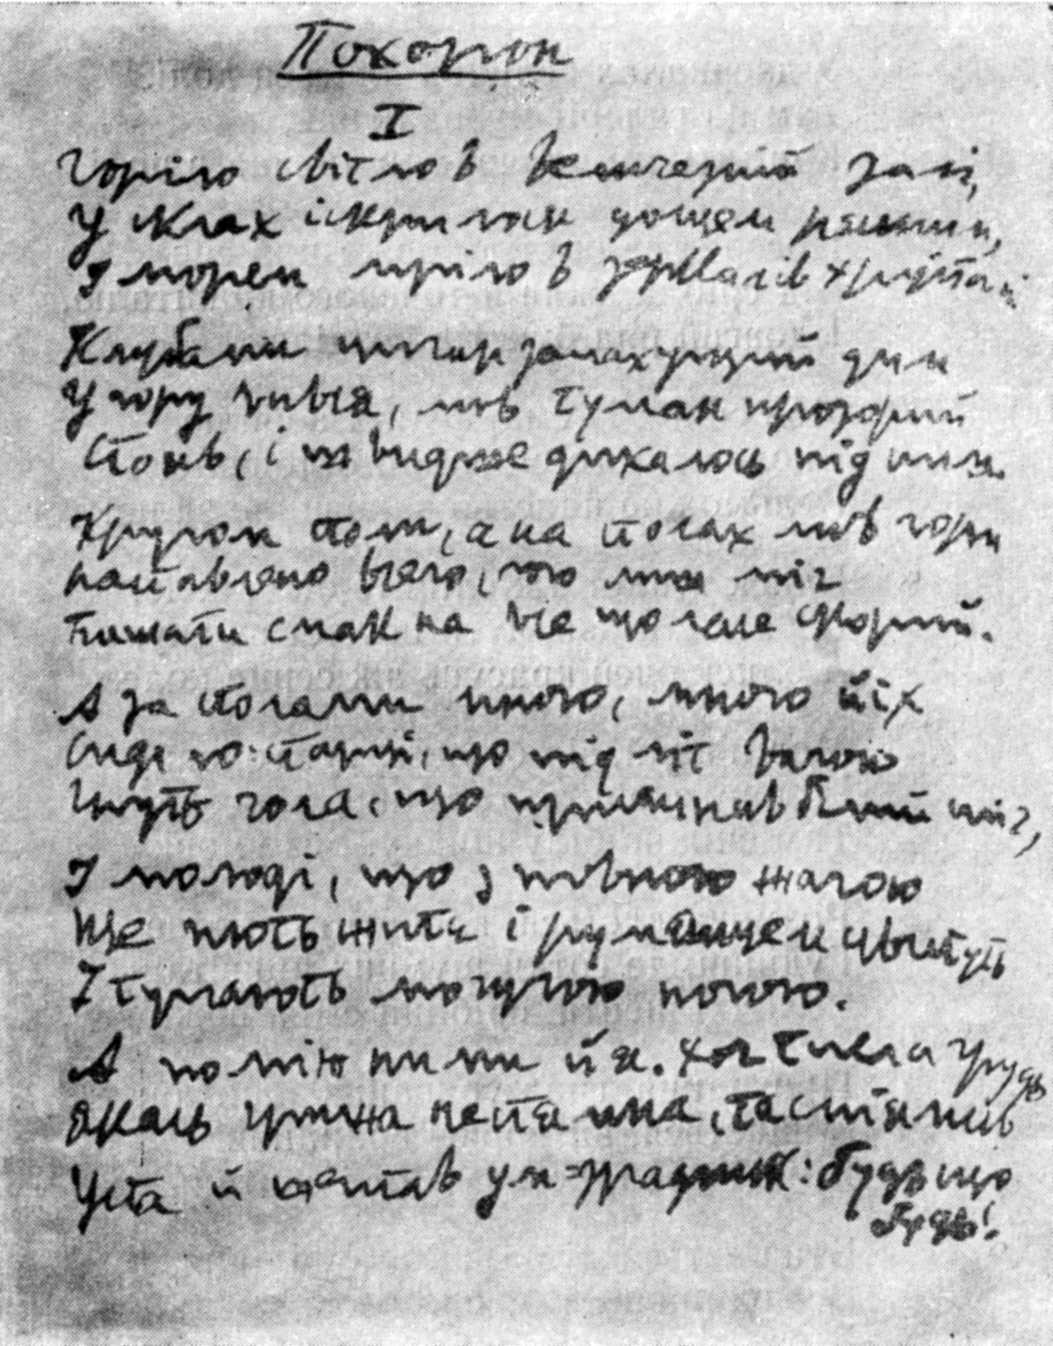 Похорон
I
Горіло світло в величезній залі,
У шклах іскрилось дощем рясним,
І морем мріло в зеркалів хрусталі.
Клубами цигар запахущий дим
Угору вився, мов туман прозорий
Стояв, і не дихалось під ним.
Кругом столи, а на столах мов гори
наставлено всего, що лиш міг
Бажати смак на все що ласе скорий.
А за столами много, много їх
Сиділо: старші, що під літ вагою
Гнуть чола, що білий сніг,
І молоді, що з повною жагою
Ще пють житє і румянцем цвитуть
І тупають могучою ногою.
А поміж ними й я. Хоч тисла грудь
Якась грижа неясна, та стіяв
Уста й шептав ум-зрадник: будь що
будь!